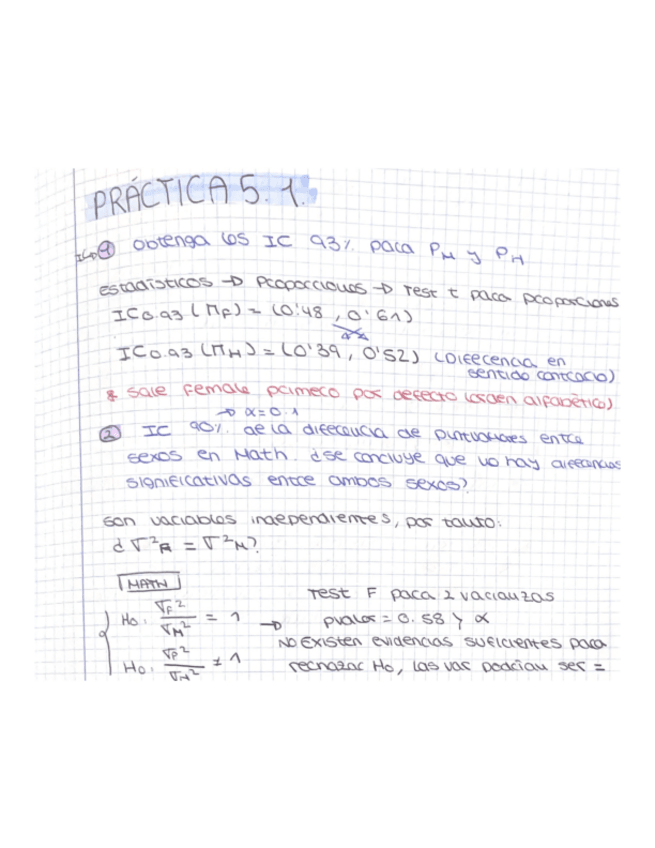 PRÁCTICA 5.1.
① Obtenga los IC 93% para P_M y P_H
Estadísticos → Proporciones → Test t para proporciones
IC0.93 (π_F) = (0'48, 0'61)
IC0.93 (π_M) = (0'39, 0'52) (Diferencia en
sentido contrario)
* Sale Female primero por defecto (orden alfabético)
→ α = 0.1
② IC 90% de la diferencia de puntuaciones entre
sexos en Math. ¿Se concluye que no hay diferencias
significativas entre ambos sexos?
Son variables independientes, por tanto:
¿σ²_F = σ²_M?
MATH
H0: σ_F²/σ_M² = 1 →
H0: σ_F²/σ_M² ≠ 1
Test F para 2 varianzas
pvalor = 0.58 > α
No existen evidencias suficientes para
rechazar H0, las var podrían ser =